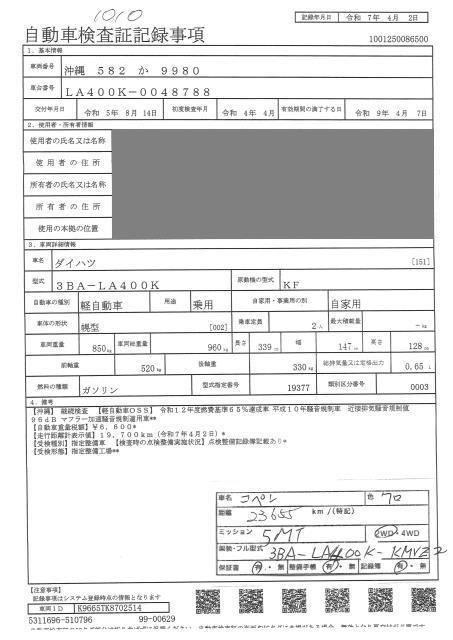 1010
記録年月日 令和 7年 4月 2日
自動車検査証記録事項
1001250086500
1. 基本情報
車両番号 沖縄 582 か 9980
車台番号 LA400K-0048788
交付年月日 令和 5年 8月 14日 初度検査年月 令和 4年 4月 有効期間の満了する日 令和 9年 4月 7日
2. 使用者・所有者情報
使用者の氏名又は名称
使用者の住所
所有者の氏名又は名称
所有者の住所
使用の本拠の位置
3. 車両詳細情報
車名 ダイハツ [151]
型式 3BA-LA400K 原動機の型式 KF
自動車の種別 軽自動車 用途 乗用 自家用・事業用の別 自家用
車体の形状 幌型 [002] 乗車定員 2人 最大積載量 -kg
車両重量 850kg 車両総重量 960kg 長さ 339cm 幅 147cm 高さ 128cm
前軸重 520kg 後軸重 330kg 総排気量又は定格出力 0.65L
燃料の種類 ガソリン 型式指定番号 19377 類別区分番号 0003
4. 備考
【沖縄】 継続検査 【軽自動車OSS】 令和12年度燃費基準65%達成車 平成10年騒音規制車 近接排気騒音規制値
96dB マフラー加速騒音規制適用車**
【自動車重量税額】¥6,600*
【走行距離計表示値】19,700km(令和7年4月2日)*
【受検種別】指定整備車 【検査時の点検整備実施状況】点検整備記録簿記載あり*
【受検形態】指定整備工場**
車名 コペン 色 クロ
距離 23655 km/(特記)
ミッション 5MT 2WD・4WD
類別・フル型式 3BA-LA400K-KMVZ
保証書 有・無 整備手帳 有・無 記録簿 有・無
【注意事項】
記録事項はシステム登録時点の情報となります
車両ID K9665TK8702514
5311696-510796 99-00629